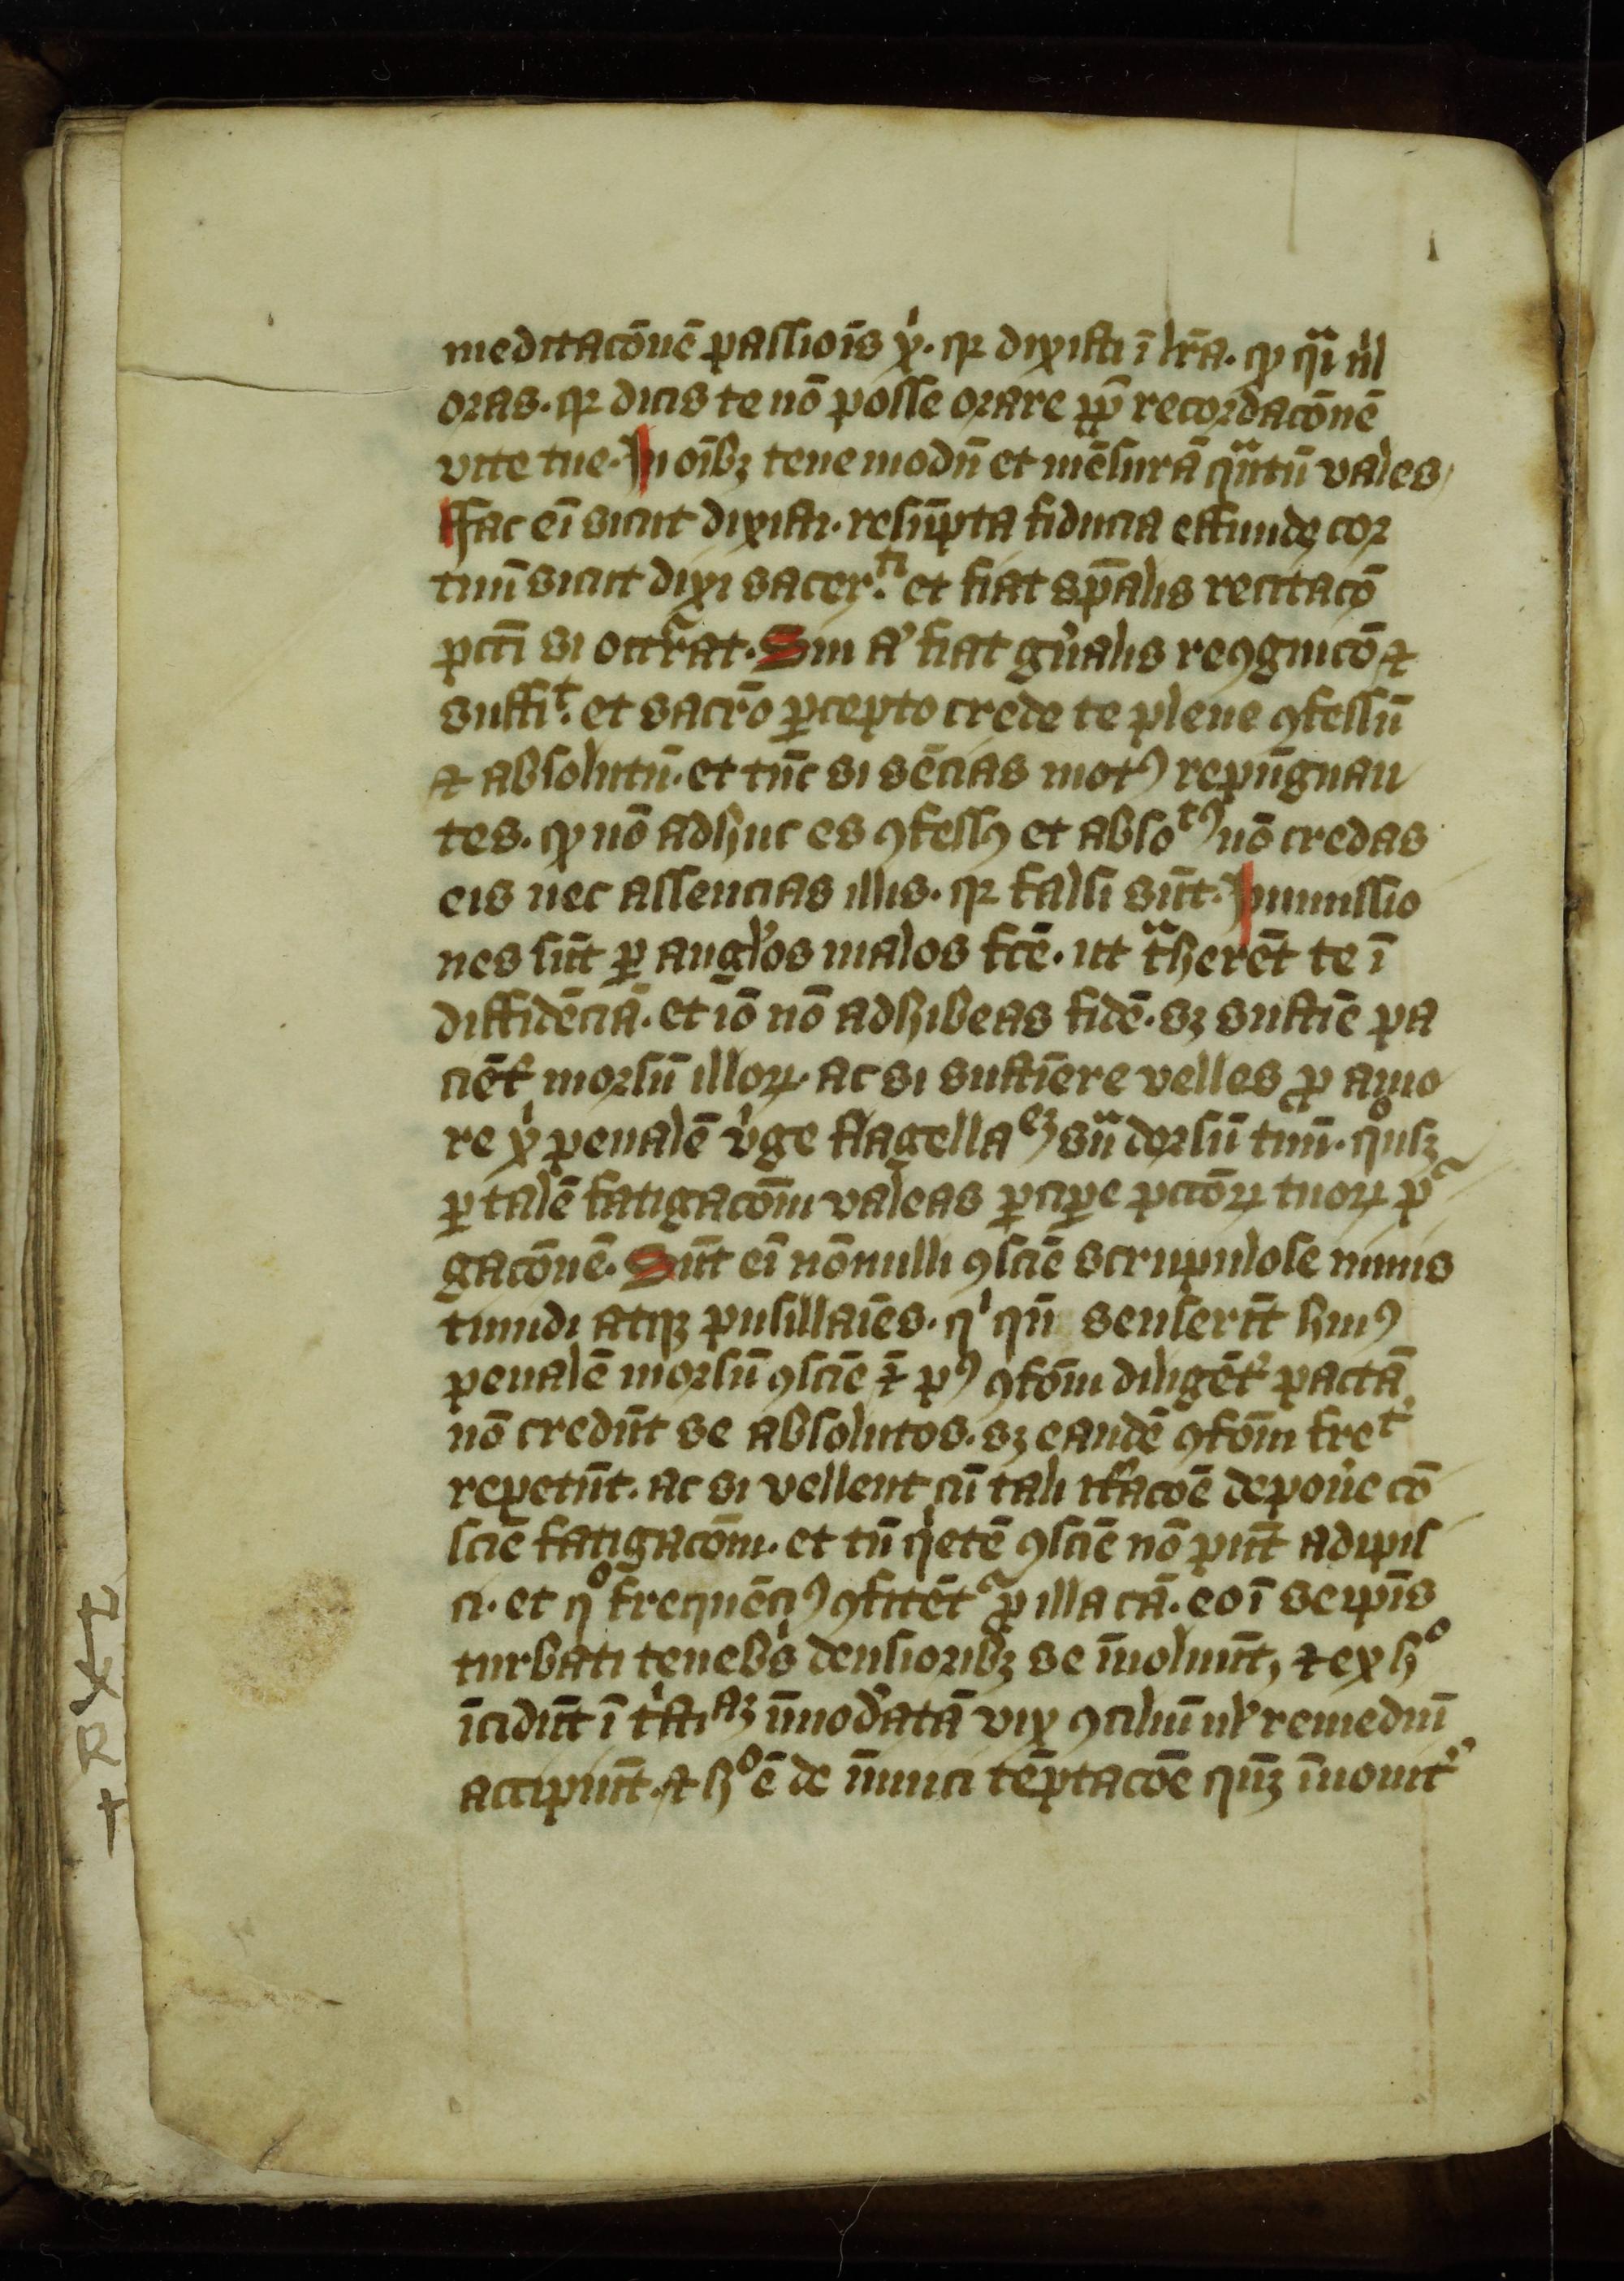 meditacōnē passiois xͥ. qꝛ dixisti ī lr̄a. ꝙ qͣi nͥl
oras. qꝛ dicis te nō posse orare ꝓp̄ recordacōnē
vite tue. In oībꝫ tene modū et mēsurā qͣntū vales
ffac eī sicut dixisti. resūpta fiducia effunde cor
tuū sicut dixi sacerᵗⁱ. et fiat sp̄alis recitacō
pctī si occͬrat. Sin aͬ fiat gn̄alis recꝯgnicō ⁊
suffiᵗ. et sacrō ꝑcepto crede te plene ꝯfessū
⁊ absolutū. et tūc si sēcias motꝰ repūgnan
tes. ꝙ nō adhuc es ꝯfessꝰ et absoᵗꝰ nō credas
eis nec assencias illis. qꝛ falsi sūt. Inmissio
nes sūt ꝑ angl̓os malos fcē. ut tͣherēt te ī
diffidēciā. et iō nō adhibeas fidē. sꝫ sustīe pa
ciēt̓ morsū illoꝝ. ac si sustīere velles ꝓ amo
re xͥ penalē vͥge flagellaᶜꝫ suͣ dorsū tuū. qͦusꝫ
ꝑ talē fatigacōm valeas ꝑciꝑe pctōꝝ tuoꝝ pͬ
gacōnē. Sūt eī nōnulli ꝯsciē scrupulose nimis
timidi atqꝫ pusillaīes. qͥ qn̄ senserīt huiꝰ
penalē morsū ꝯsciē ⁊̄ pꝰ ꝯfōm diligēt̓ pactā
nō credūt se absolutos. sꝫ eandē ꝯfōm freᵗ̓
repetūt. ac si vellent cū tali it̓acōe depon̓e cō
sciē fatigacōm. et tn̄ qͥetē ꝯsciē nō pn̄t adipis
ci. et qͦ frequēciꝰ ꝯfitēt ͬ ꝓ illa cā. eo ī seip̄is
turbati tenebͥs densioribꝫ se īuoluūt, ⁊ ex hͦ
īcidūt ī tͥstiᵃꝫ īmod̓atā vix ꝯciliū ul̓ remediū
accipiūt. ⁊ hͦ ē de inimici tēptacōe quā īnouit̓